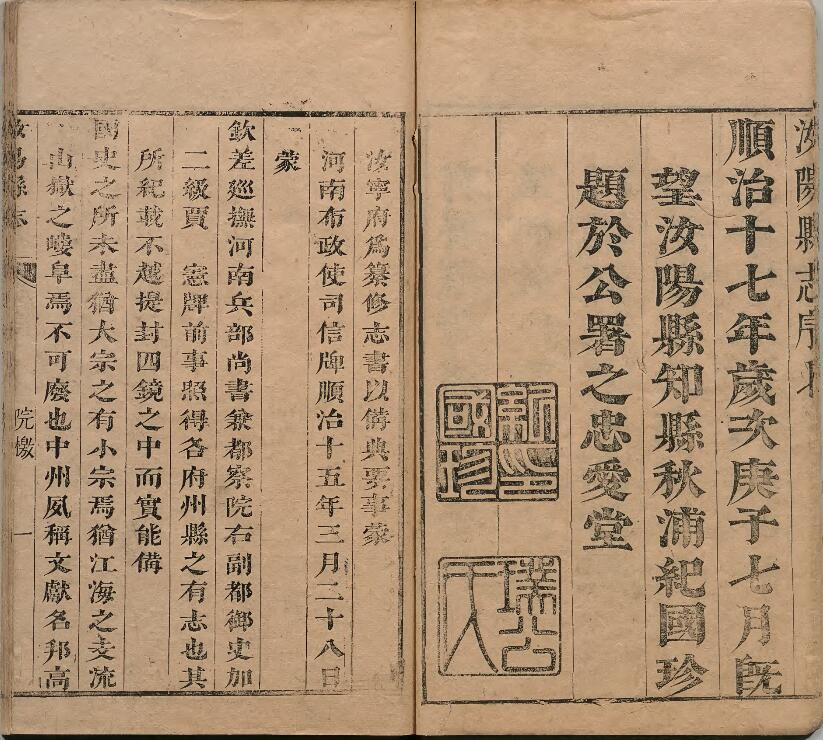 汝陽縣志序
順治十七年歲次庚子七月既
望汝陽縣知縣秋浦紀國珍
題於公署之忠愛堂
印國珍
汝寧府爲纂修志書以備典要事蒙
河南布政使司信牌順治十五年三月二十八日
蒙
欽差廵撫河南兵部尚書兼都察院右副都御史加
二級賈　憲牌前事照得各府州縣之有志也其
所紀載不越提封四鏡之中而實能備
國史之所未盡猶大宗之有小宗焉猶江海之支流
山嶽之嶁阜焉不可廢也中州夙稱文獻名邦高
汝陽縣志　院檄　一